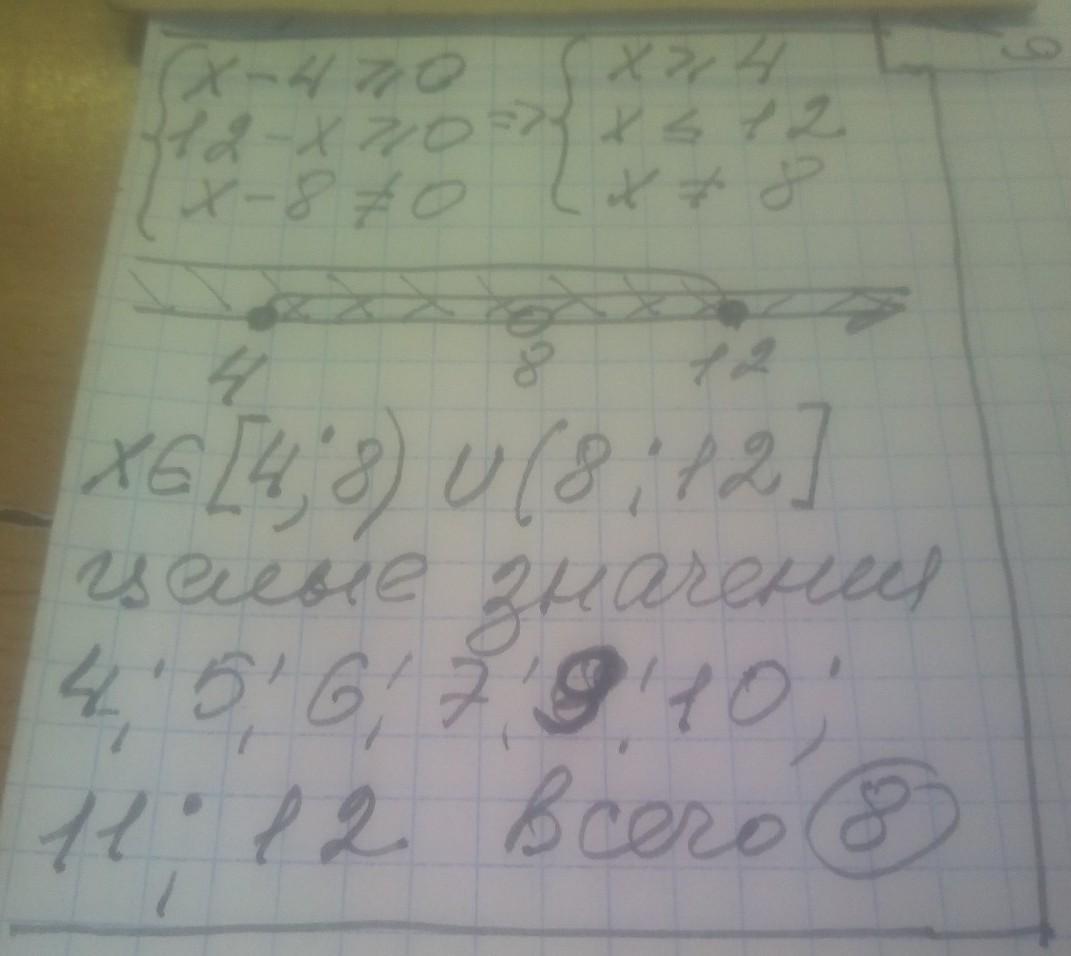 { x - 4 ⩾ 0 { x ⩾ 4
{ 12 - x ⩾ 0 => { x ≤ 12
{ x - 8 ≠ 0 { x ≠ 8
4 8 12
x ∈ [4; 8) ∪ (8; 12]
целые значения
4; 5; 6; 7; 9; 10;
11; 12 всего 8